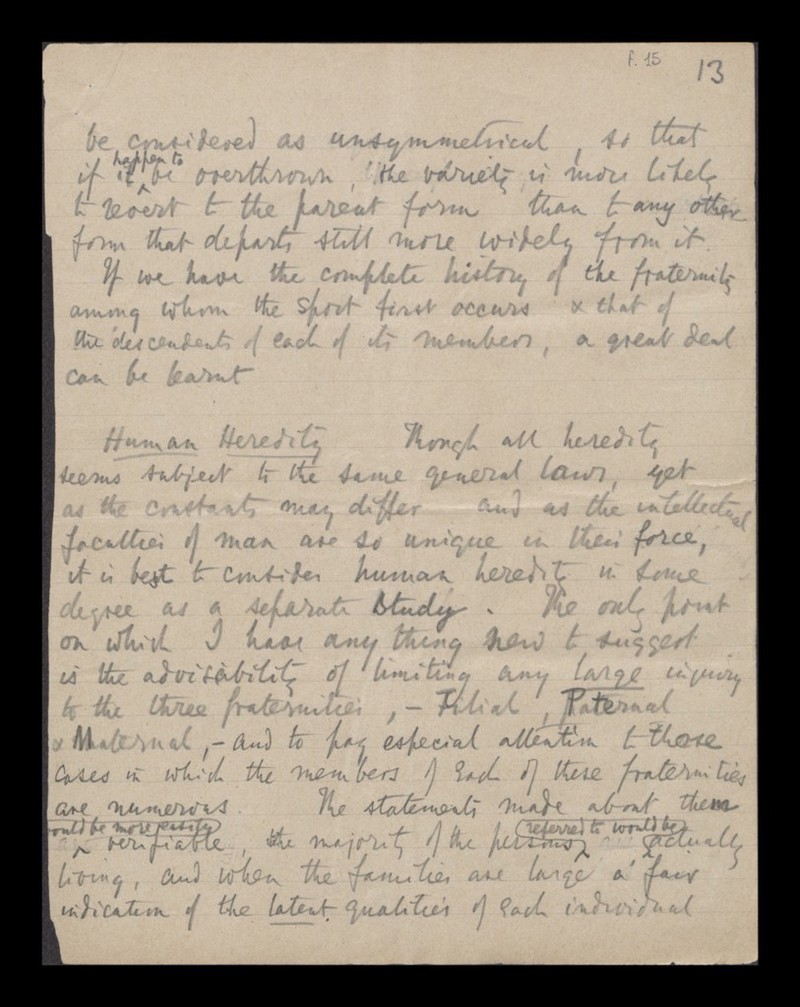 f. 15
13
be considered as unsymmetrical, so that
happen to
if it be overthrown, the variety is more likely
to revert to the parent form than to any other
form that departs still more widely from it.
If we have the complete history of the fraternity
among whom the sport first occurs & that of
the descendents of each of its members, a great deal
can be learnt
Human Heredity Though all heredity
seems subject to the same general laws, yet
as the constants may differ and as the intellectual
faculties of man are so unique in their force,
it is best to consider human heredity in some
degree as a separate study. The only point
on which I have any thing new to suggest
is the advisability of limiting any large inquiry
to the three fraternities, - Filial, Paternal
& Maternal, - and to pay especial attention to those
cases in which the members of each of these fraternities
are numerous. The statements made about them
would be more easily referred to would be
verifiable, the majority of the persons actually
living, and when the families are large a fair
indication of the latent qualities of each individual